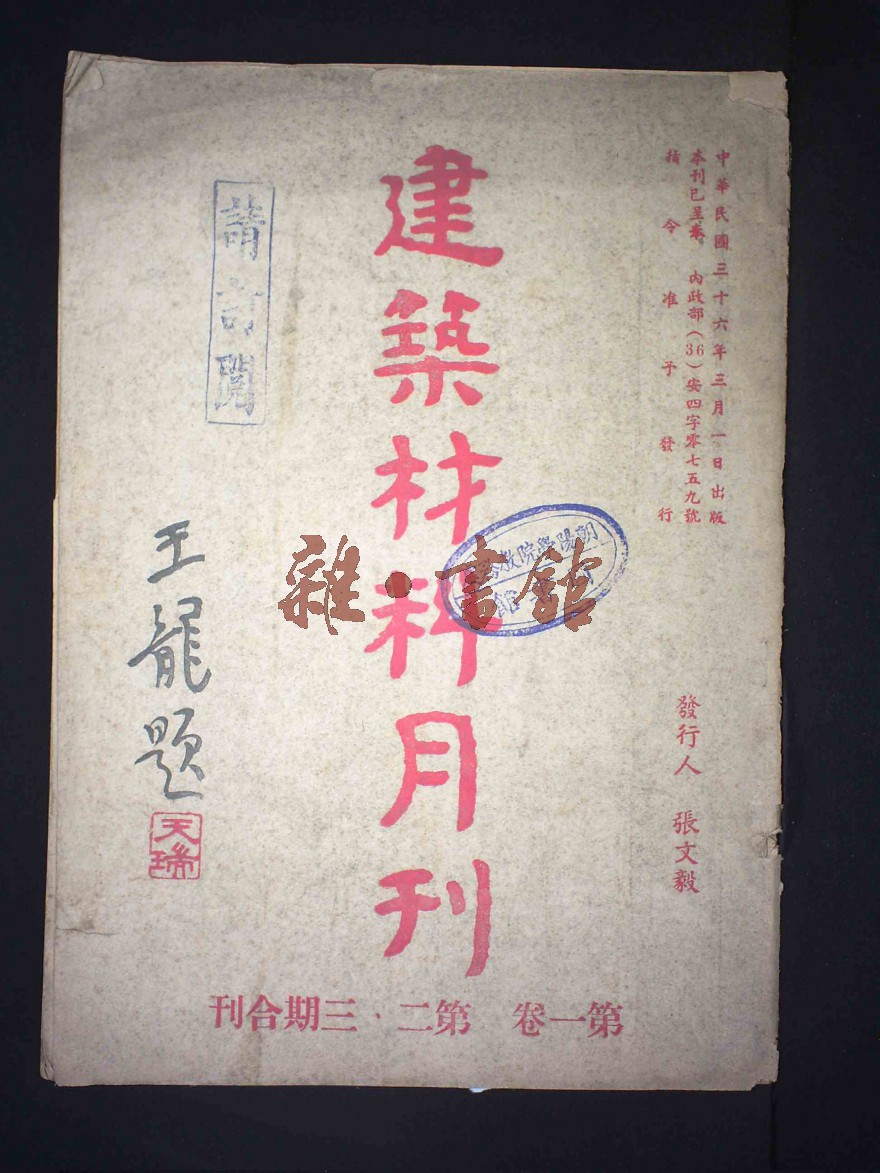 中華民國三十六年三月一日出版
本刊已呈奉 內政部(36)安四字零七五九號
指令准予發行
發行人 張文毅
建築材料月刊
第一卷 第二·三期合刊
請訂閱
王龍題
天瑞
朝陽學院
雜·書館